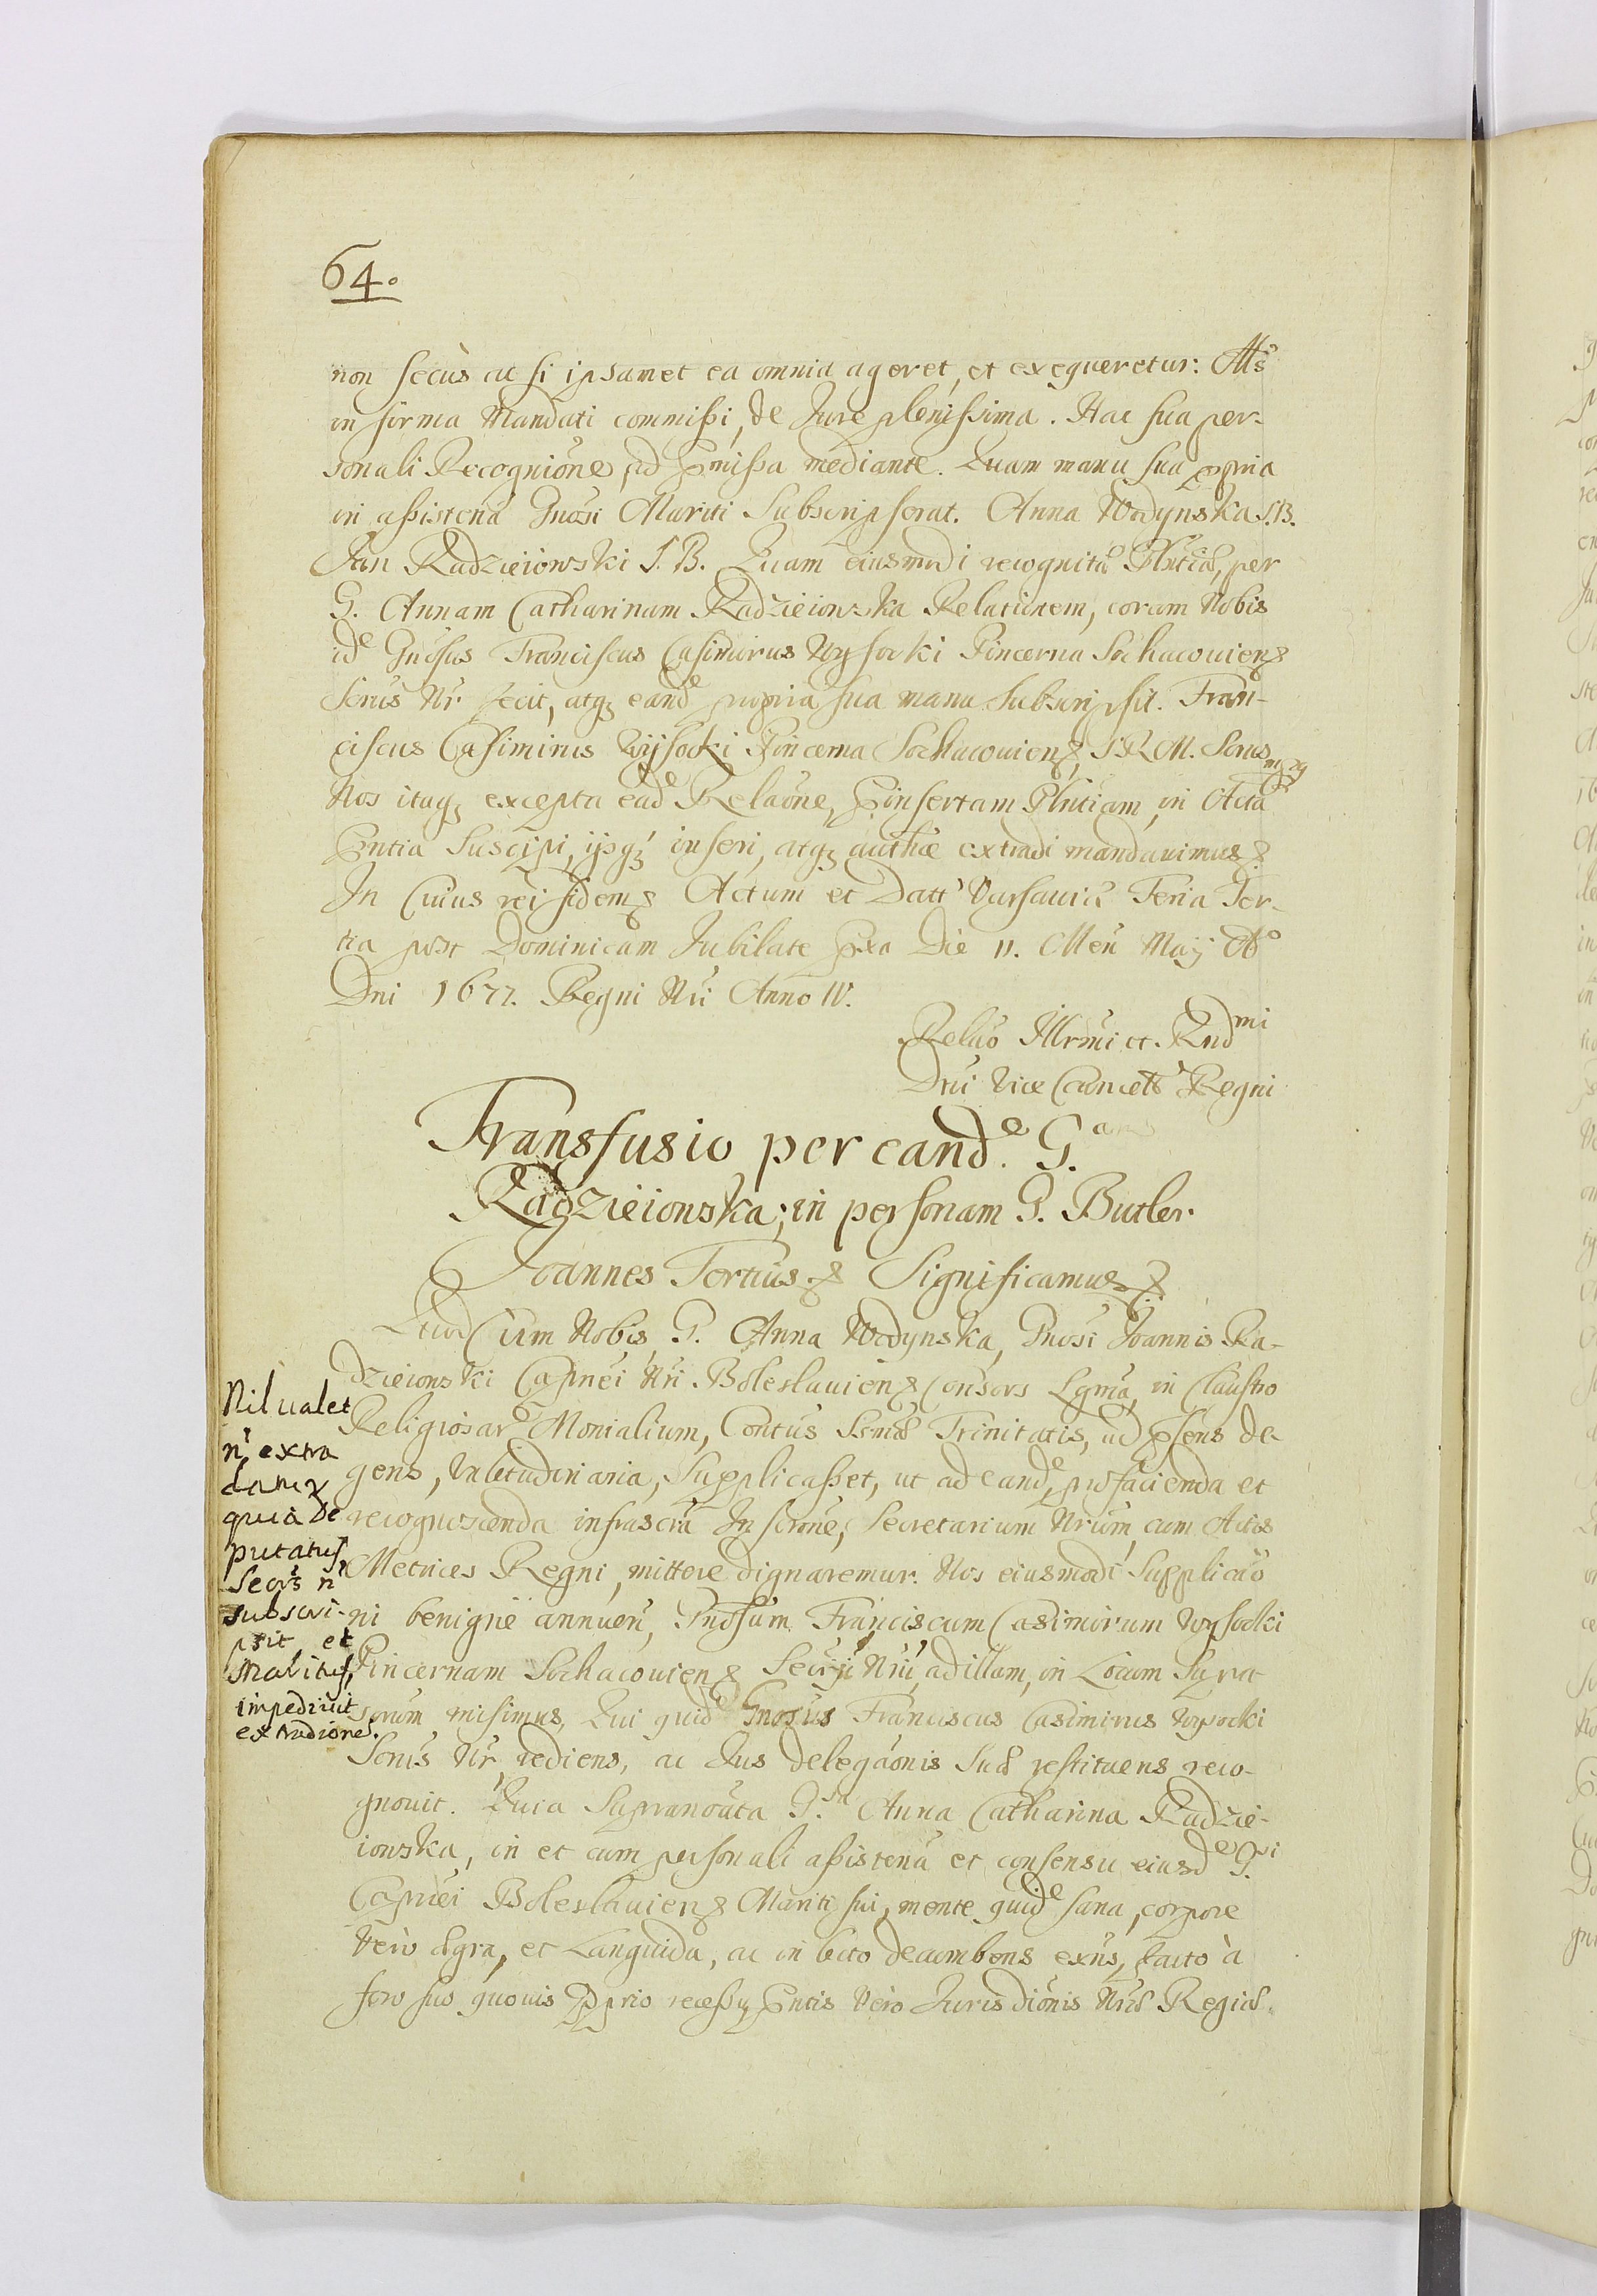 64.
non secùs ac si ipsamet ea omnia ageret, et exequeretur:
in forma Mandati commissi, de Jure plenissima. Hac sua per-
sonali Recognione, id Pmissa mediante. Quam manu sua ppria
in assistena Gnosi Mariti Subscripserat. Anna Wodynska S.B.
Jan Radzieiowski S.B. Quam eiusmodi recognita Plntia, per
G. Annam Catharinam Radzieiowska Relationem, coram Nobis
ide Gnosus Franciscus Casimirus Wysocki Pincerna Sochacouien
Scrius Nr. fecit, atq eande propria sua manu Subscripsit. Fran-
ciscus Casimirus Wysocki Pincerna Sochacouien, S.R.M. Scrius mpp
Nos itaq excepta eade Relaone, Pinsertam Plntiam, in Acta
Pntia Suscipi, ijsq inseri, atq authce extradi mandauimus
In Cuius rei fidem Actum et Datt Varsauia Feria Ter-
tia post Dominicam Jubilate Pxa Die 11. Men Maij Ao
Dni 1677. Regni Nri Anno IV.
Relao Illrmi et Rndmi
Dni Vice Cancell Regni
Transfusio per eande. G.
Radzieionska; in personam G. Butler.
Joannes Tertius Significamus
Quod Cum Nobis G. Anna Wodynska, Gnosi Joannis Ra-
dzieionski Capnei Nri. Boleslauien Consors Lgma, in Claustro
Religiosare Monialium, Contus Ssmae Trinitatis, ad Psens de-
gens, Valetudinaria, Supplicasset, ut ad eande, pro facienda et
recognoscenda infrascra Inscrone, Secretarium Nrum, cum Actis
Metrices Regni, mittere dignaremur. Nos eiusmodi Supplicao
ni benigne annuen, Gnosum Franciscum Casimirum Wysocki
Pincernam Sochacouien Secrij Nrij, ad illam, in Locum Supra
scrum misimus, Qui quide Gnosus Franciscus Casimirus Wysocki
Scrius Nr, rediens, ac Jus delegaonis Suae restituens reco-
gnouit. Quia Supranoata G. Anna Catharina Radzie-
iowska, in et cum personali assistena et consensu eiusde Gi
Capnei Boleslauien Mariti sui, mente quide sana, corpore
Vero aegra, et Languida, ac in lecto decumbens exns, facto à
foro suo quouis pprio recessu Pntis Vero Jurisdionis Nrae Regiae.
Nil ualet
n extra
datur
quia De
putatus
Secrs n
subscri-
psit et
Maritus
impediuit
extradione.